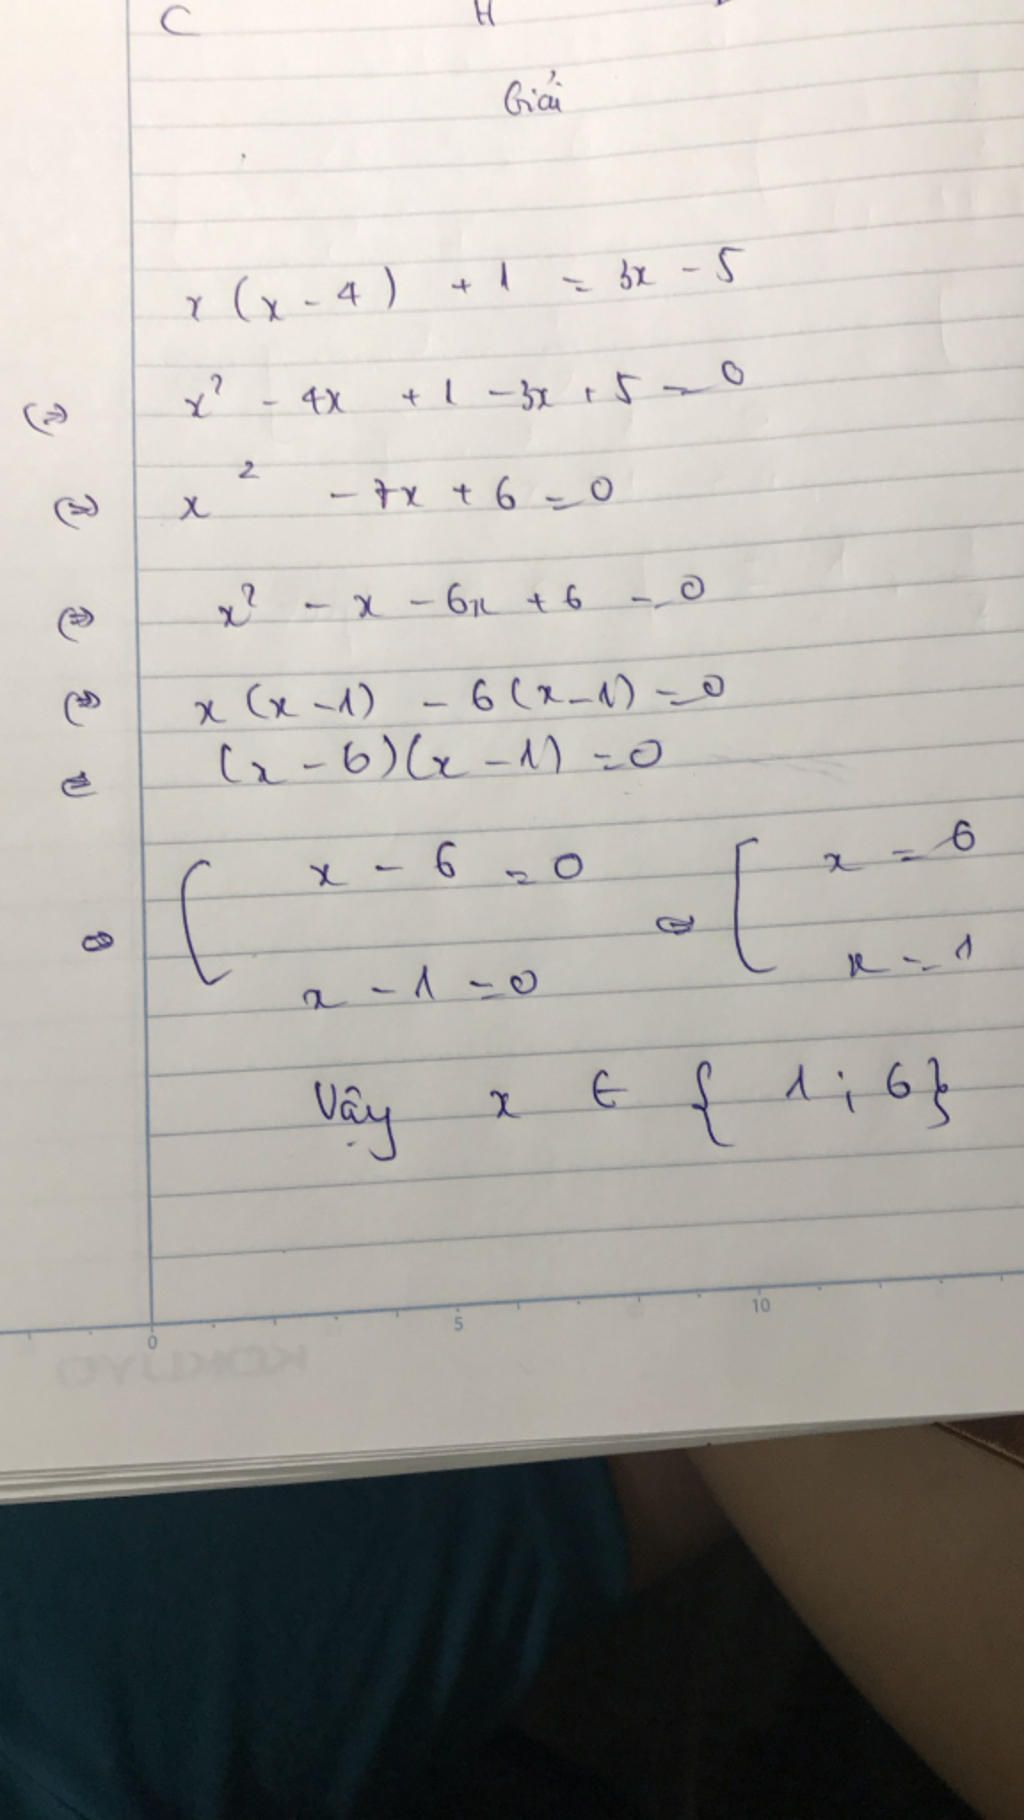 C H
Giải
x (x - 4) + 1 = 3x - 5
⇔ x² - 4x + 1 - 3x + 5 = 0
⇔ x² - 7x + 6 = 0
⇔ x² - x - 6x + 6 = 0
⇔ x (x - 1) - 6 (x - 1) = 0
⇔ (x - 6)(x - 1) = 0
⇔ [ x - 6 = 0 ⇔ [ x = 6
x - 1 = 0 x = 1
Vậy x ∈ { 1 ; 6 }
0 5 10
KOKUYO